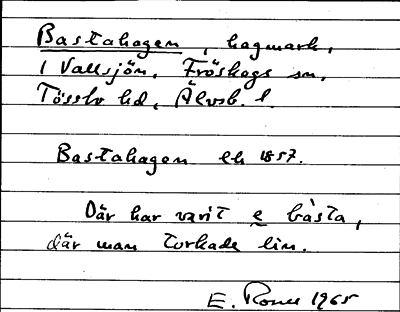 Bastahagen, hagmark,
1 Vallsjön, Fröskogs sn,
Tössbo hd, Älvsb. l.
Bastahagen ek 1857.
Där har varit e bàsta,
där man torkade lin.
E. 1965